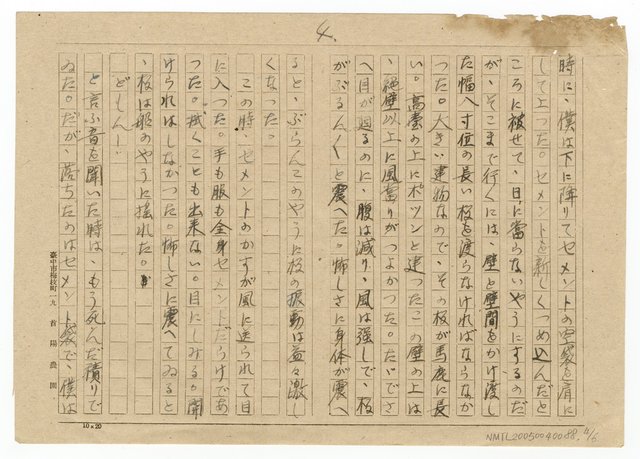 4.
時に、僕は下に降りてセメントの空袋を肩に
して上つた。セメントを新しくつめ込んだと
ころに被せて、日に當らないやうにするのだ
が、そこまで行くには、壁と壁間をかけ渡し
た幅八寸位の長い板を渡らなければならなか
つた。大きい建物なので、その板が馬鹿に長
い。高臺の上にポツンと建つたこの壁の上は
、絶壁以上に風當りがつよかつた。たいでさ
へ目が廻るのに、腹は減り、風は強しで、板
がぶるん〳〵と震へた。怖しさに身体が震へ
ると、ぶらんこのやうに板の振動は益々激し
くなつた。
この時、セメントのかすが風に送られて目
に入つた。手も服も全身セメントだらけであ
つた。拭くことも出来ない。目にしみる。開
けられはしなかつた。怖しさに震へてゐると
、板は船のやうに揺れた。
どもんー
と言ふ音を聞いた時は、もう死んだ積りで
ゐた。だが、落ちたのはセメント袋で、僕は
臺中市梅枝町一九 首陽農園
10×20
NMTL20050040088 4/6